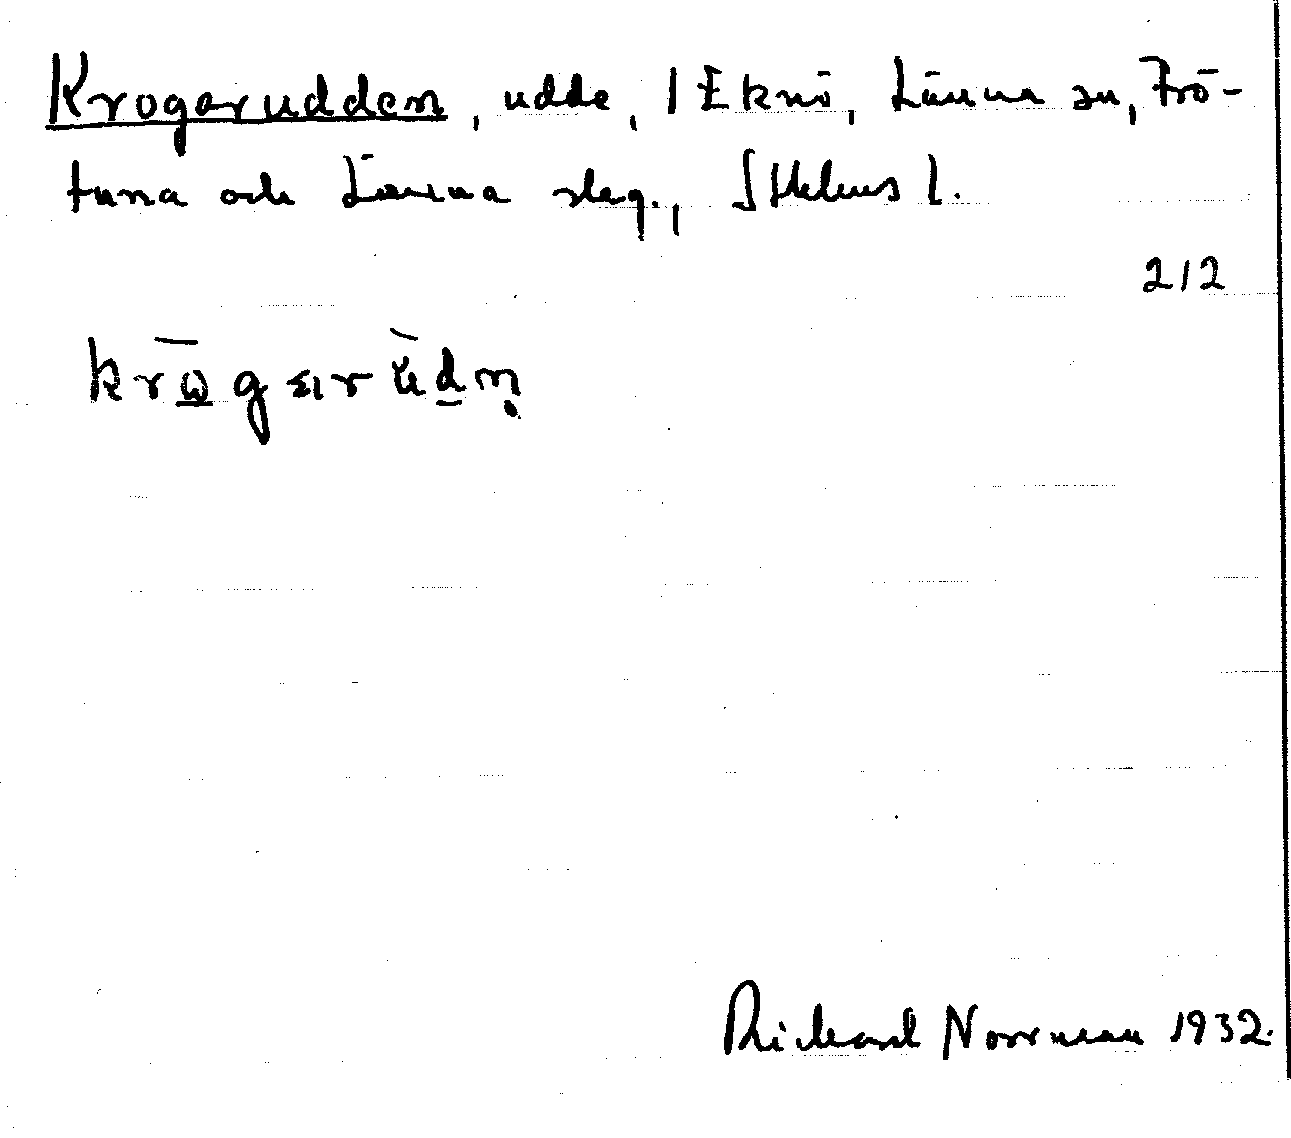 Krogarudden, udde, 1 Eknö, Länna sn, Frö-
tuna och Länna slag., Sthlms l.
212
Rickard Norrman 1932.